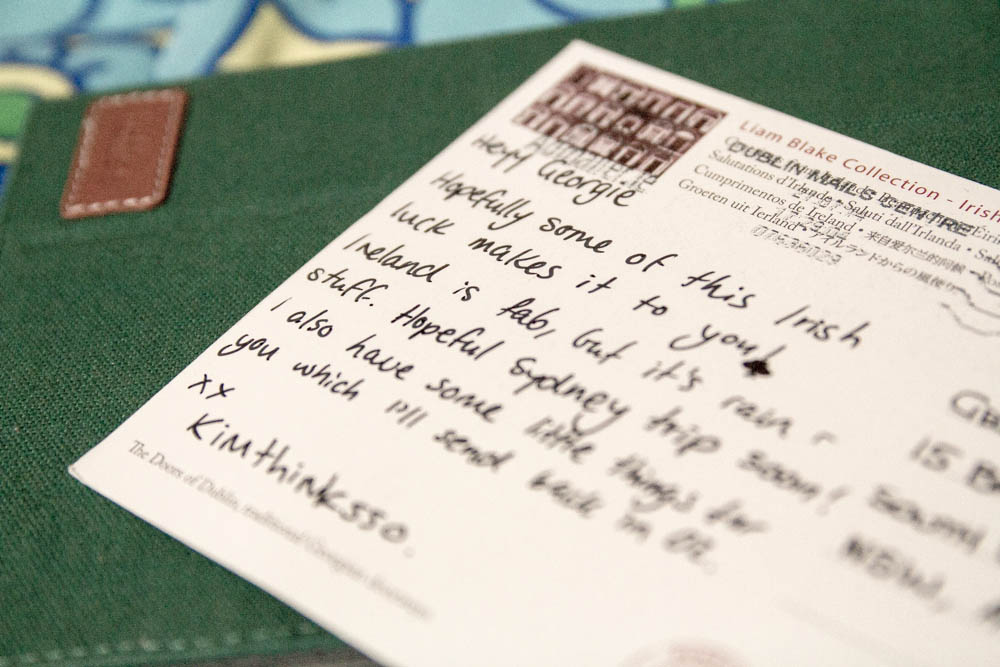 Hey Georgie
Hopefully some of this Irish
luck makes it to you!
Ireland is fab, but it's rain -
stuff. Hopeful Sydney trip soon!
I also have some little things for
you which I'll send back in Oz.
xx
Kimthinksso.
The Doors of Dublin, traditional Georgian
Liam Blake Collection - Irish
DUBLIN MAILS CENTRE
Salutations d'Irlande • Saluti dall'Irlanda •
Cumprimentos de Ireland • 来自爱尔兰的问候 •
Groeten uit Ierland • アイルランドからの風便り
07838029
15 B
NSW,